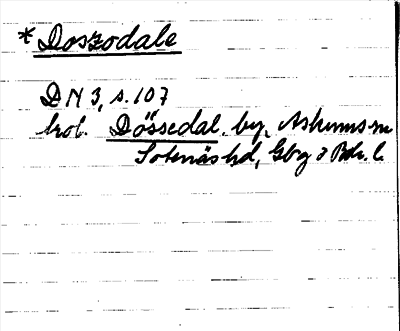 * Doszodale
DN 3, s. 107
trol. Dössedal, by, Askums sn
Sotenäs hd, Gbg o Boh. l.